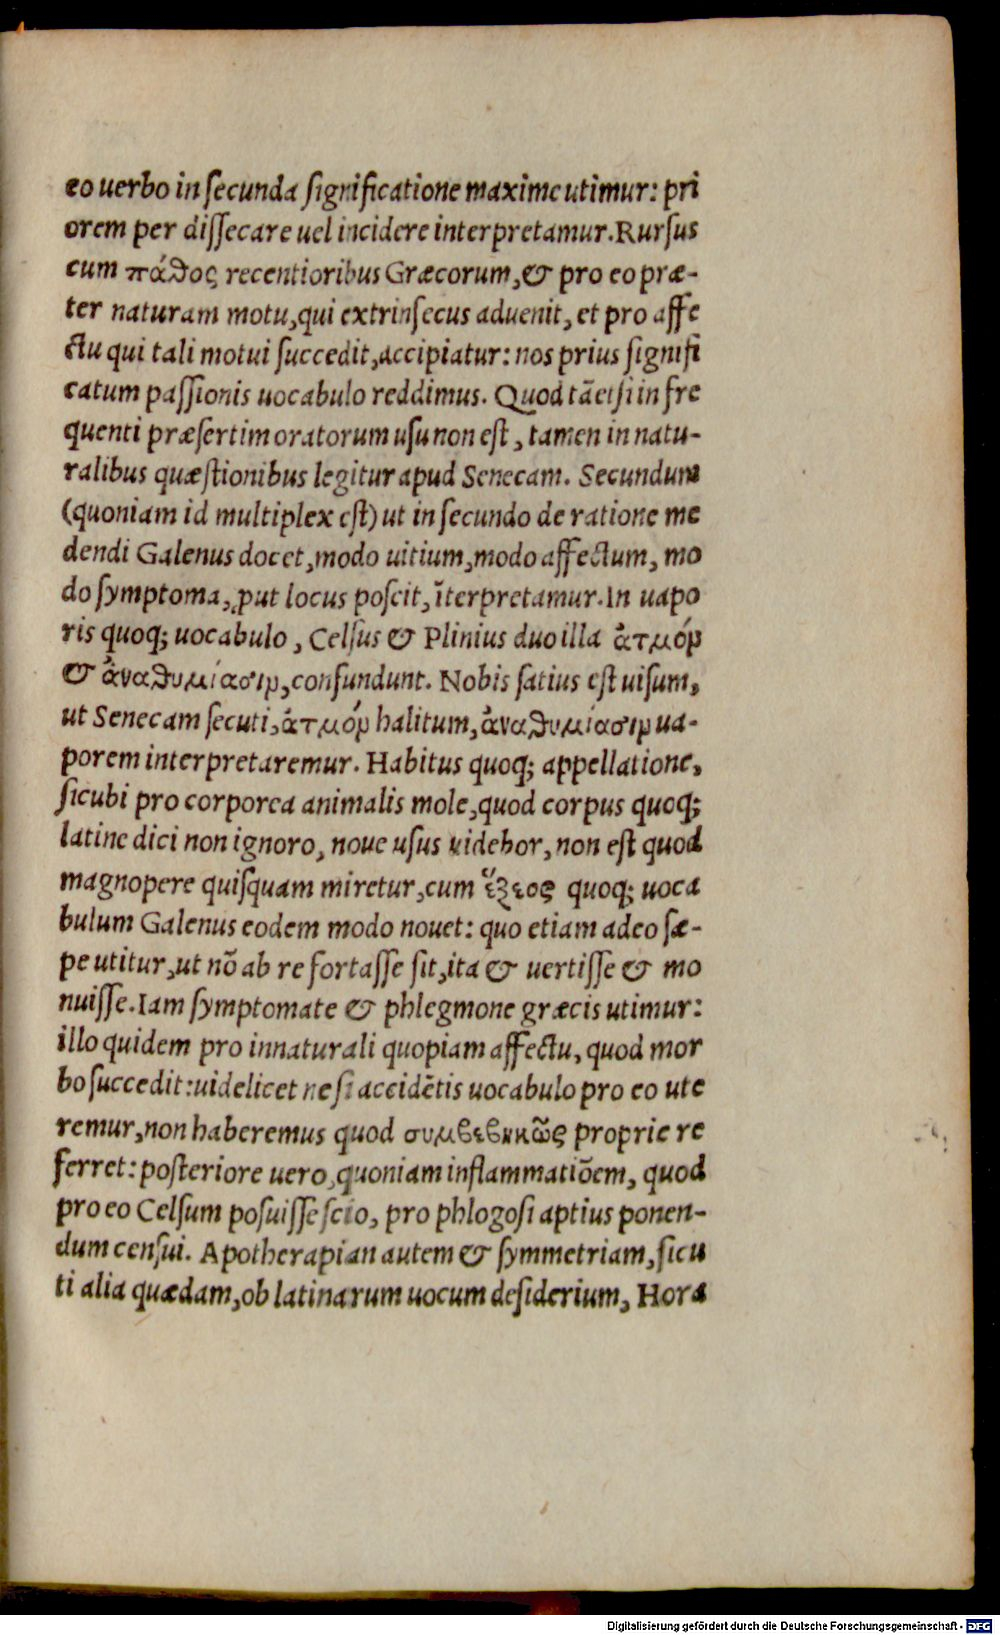 eo uerbo in ſecunda ſignificatione maxime utimur: pri
orem per diſſecare uel incidere interpretamur. Rurſus
cum πάθος recentioribus Græcorum, & pro eo præ-
ter naturam motu, qui extrinſecus aduenit, et pro affe
ctu qui tali motui ſuccedit, accipiatur: nos prius ſignifi
catum paſſionis uocabulo reddimus. Quod tãetſi in fre
quenti præſertim oratorum uſu non eſt, tamen in natu-
ralibus quæſtionibus legitur apud Senecam. Secundum
(quoniam id multiplex eſt) ut in ſecundo de ratione me
dendi Galenus docet, modo uitium, modo affectum, mo
do ſymptoma, ꝓut locus poſcit, ĩterpretamur. In uapo
ris quoq; uocabulo, Celſus & Plinius duo illa ἀτμόν
& ἀναθυμίασιν, confundunt. Nobis ſatius eſt uiſum,
ut Senecam ſecuti, ἀτμόν halitum, ἀναθυμίασιν ua-
porem interpretaremur. Habitus quoq; appellatione,
ſicubi pro corporea animalis mole, quod corpus quoq;
latine dici non ignoro, noue uſus uidebor, non eſt quod
magnopere quiſquam miretur, cum ἕξεος quoq; uoca
bulum Galenus eodem modo nouet: quo etiam adeo ſæ-
pe utitur, ut nõ ab re fortaſſe ſit, ita & uertiſſe & mo
nuiſſe. Iam ſymptomate & phlegmone græcis utimur:
illo quidem pro innaturali quopiam affectu, quod mor
bo ſuccedit: uidelicet ne ſi accidẽtis uocabulo pro eo ute
remur, non haberemus quod συμβεβηκῶς proprie re
ferret: poſteriore uero, quoniam inflammatiõem, quod
pro eo Celſum poſuiſſe ſcio, pro phlogoſi aptius ponen-
dum cenſui. Apotherapian autem & ſymmetriam, ſicu
ti alia quædam, ob latinarum uocum deſiderium, Hora
Digitalisierung gefördert durch die Deutsche Forschungsgemeinschaft - DFG